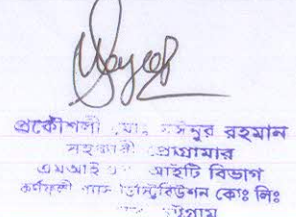 প্রকৌশলী মোঃ রহমান
সহকারী প্রোগ্রামার
এমআইএস আইটি বিভাগ
কর্ণফুলী গ্যাস ডিস্ট্রিবিউশন কোঃ লিঃ
চট্টগ্রাম